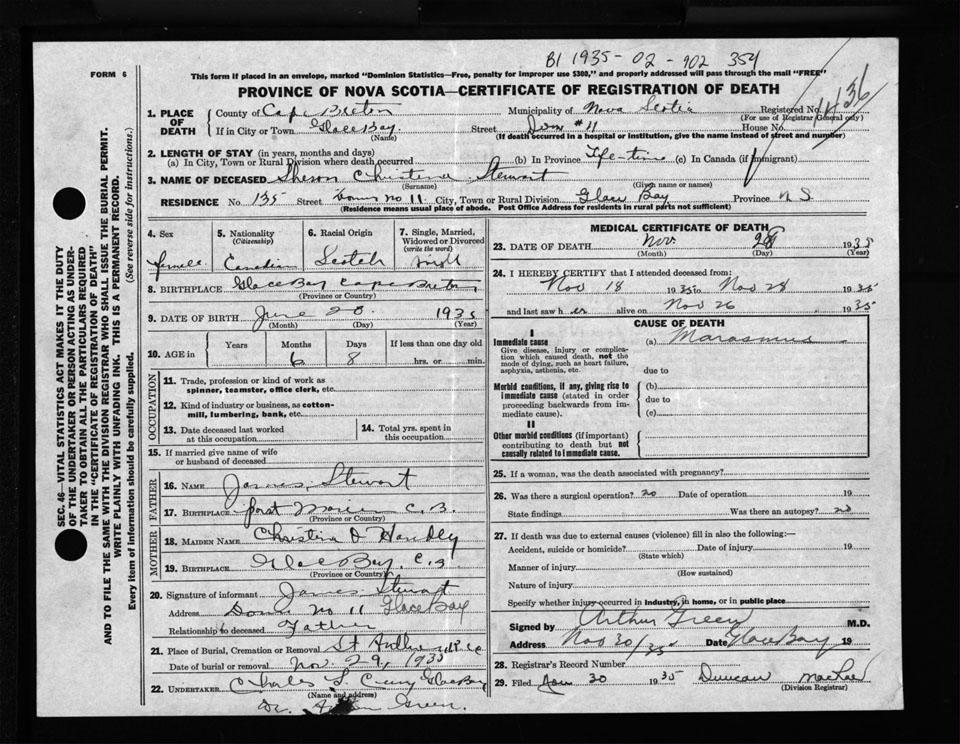 B1 1935-02-902 354
FORM 6
This form if placed in an envelope, marked "Dominion Statistics—Free, penalty for improper use $300," and properly addressed will pass through the mail "FREE"
PROVINCE OF NOVA SCOTIA—CERTIFICATE OF REGISTRATION OF DEATH
1. PLACE OF DEATH County of Cape Breton Municipality of Nova Scotia Registered No.
(For use of Registrar General only)
If in City or Town Glace Bay. Street Dom #11 House No.
(Name) (If death occurred in a hospital or institution, give the name instead of street and number)
2. LENGTH OF STAY (in years, months and days)
(a) In City, Town or Rural Division where death occurred (b) In Province Life-time (c) In Canada (if immigrant)
3. NAME OF DECEASED Sheron Christena Stewart
(Surname) (Given name or names)
RESIDENCE No. 135 Street Dom no 11. City, Town or Rural Division Glace Bay Province N S.
(Residence means usual place of abode. Post Office Address for residents in rural parts not sufficient)
4. Sex
female
5. Nationality
(Citizenship)
Canadian
6. Racial Origin
Scotch
7. Single, Married, Widowed or Divorced
(write the word)
single
8. BIRTHPLACE Glace Bay Cape Breton
(Province or Country)
9. DATE OF BIRTH June 20 1935
(Month) (Day) (Year)
10. AGE in Years Months Days If less than one day old
6 8 hrs. or min.
OCCUPATION
11. Trade, profession or kind of work as
spinner, teamster, office clerk, etc.
12. Kind of industry or business, as cotton-
mill, lumbering, bank, etc.
13. Date deceased last worked
at this occupation
14. Total yrs. spent in
this occupation
15. If married give name of wife
or husband of deceased
FATHER
16. NAME James Stewart
17. BIRTHPLACE port Morien C. B.
(Province or Country)
MOTHER
18. MAIDEN NAME Christina D Handley
19. BIRTHPLACE Glace Bay. C. B.
(Province or Country)
20. Signature of informant James Stewart
Address Dom no 11 Glace Bay
Relationship to deceased Father
21. Place of Burial, Cremation or Removal St
Date of burial or removal Nov. 29, 1935
22. UNDERTAKER Charles L. Glace Bay
(Name and address)
Dr. Arthur Green.
MEDICAL CERTIFICATE OF DEATH
23. DATE OF DEATH Nov 28 1935
(Month) (Day) (Year)
24. I HEREBY CERTIFY that I attended deceased from:
Nov 18 1935 to Nov 28 1935
and last saw her alive on Nov 26 1935
CAUSE OF DEATH
I
Immediate cause (a) Marasmus
Give disease, injury or complica-
tion which caused death, not the
mode of dying, such as heart failure,
asphyxia, asthenia, etc. due to
Morbid conditions, if any, giving rise to (b)
immediate cause (stated in order due to
proceeding backwards from im-
mediate cause). (c)
II
Other morbid conditions (if important)
contributing to death but not
causally related to immediate cause.
25. If a woman, was the death associated with pregnancy?
26. Was there a surgical operation? no Date of operation 19
State findings Was there an autopsy? no
27. If death was due to external causes (violence) fill in also the following:—
Accident, suicide or homicide? Date of injury 19
(State which)
Manner of injury
(How sustained)
Nature of injury
Specify whether injury occurred in industry, in home, or in public place
Signed by Arthur Green M.D.
Address Nov 30/35 Date Glace Bay 19
28. Registrar's Record Number
29. Filed 30 1935 Duncan MacRae
(Division Registrar)
SEC. 46—VITAL STATISTICS ACT MAKES IT THE DUTY
OF THE UNDERTAKER OR PERSON ACTING AS UNDER-
TAKER TO OBTAIN ALL THE PARTICULARS REQUIRED
IN THE "CERTIFICATE OF REGISTRATION OF DEATH"
AND TO FILE THE SAME WITH THE DIVISION REGISTRAR WHO SHALL ISSUE THE BURIAL PERMIT.
WRITE PLAINLY WITH UNFADING INK. THIS IS A PERMANENT RECORD.
Every item of information should be carefully supplied. (See reverse side for instructions.)